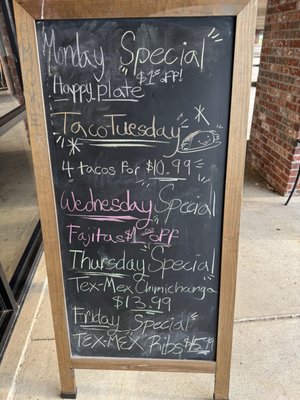 Monday Special
$1.00 off!
Happy Plate
Taco Tuesday
4 tacos for $10.99
Wednesday Special
Fajitas $1.00 off
Thursday Special
Tex-Mex Chimichanga
$13.99
Friday Special
TEX-MEX Ribs $15.49